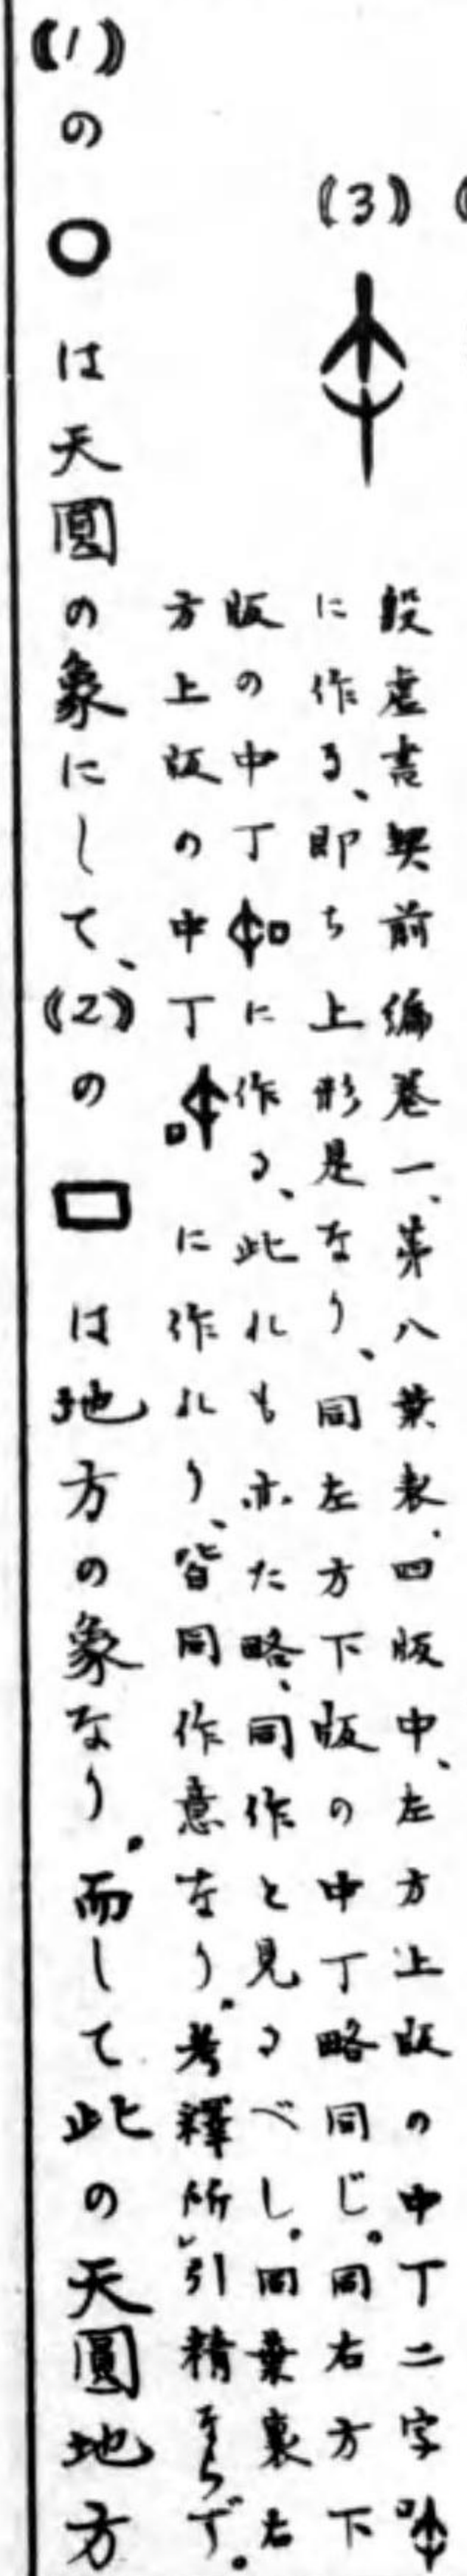 (3)
殷虚書契前編巻一、第八葉表、四版中、左方上版の中丁二字
に作る、即ち上形是なり、同左方下版の中丁略同じ。同右方下
版の中丁 に作る、此れも亦た略、同作と見るべし。同葉裏右
方上版の中丁 に作れり、皆同作意なり。考釋所引精ならず。
(1)の○は天圓の象にして、(2)の□は地方の象なり。而して此の天圓地方